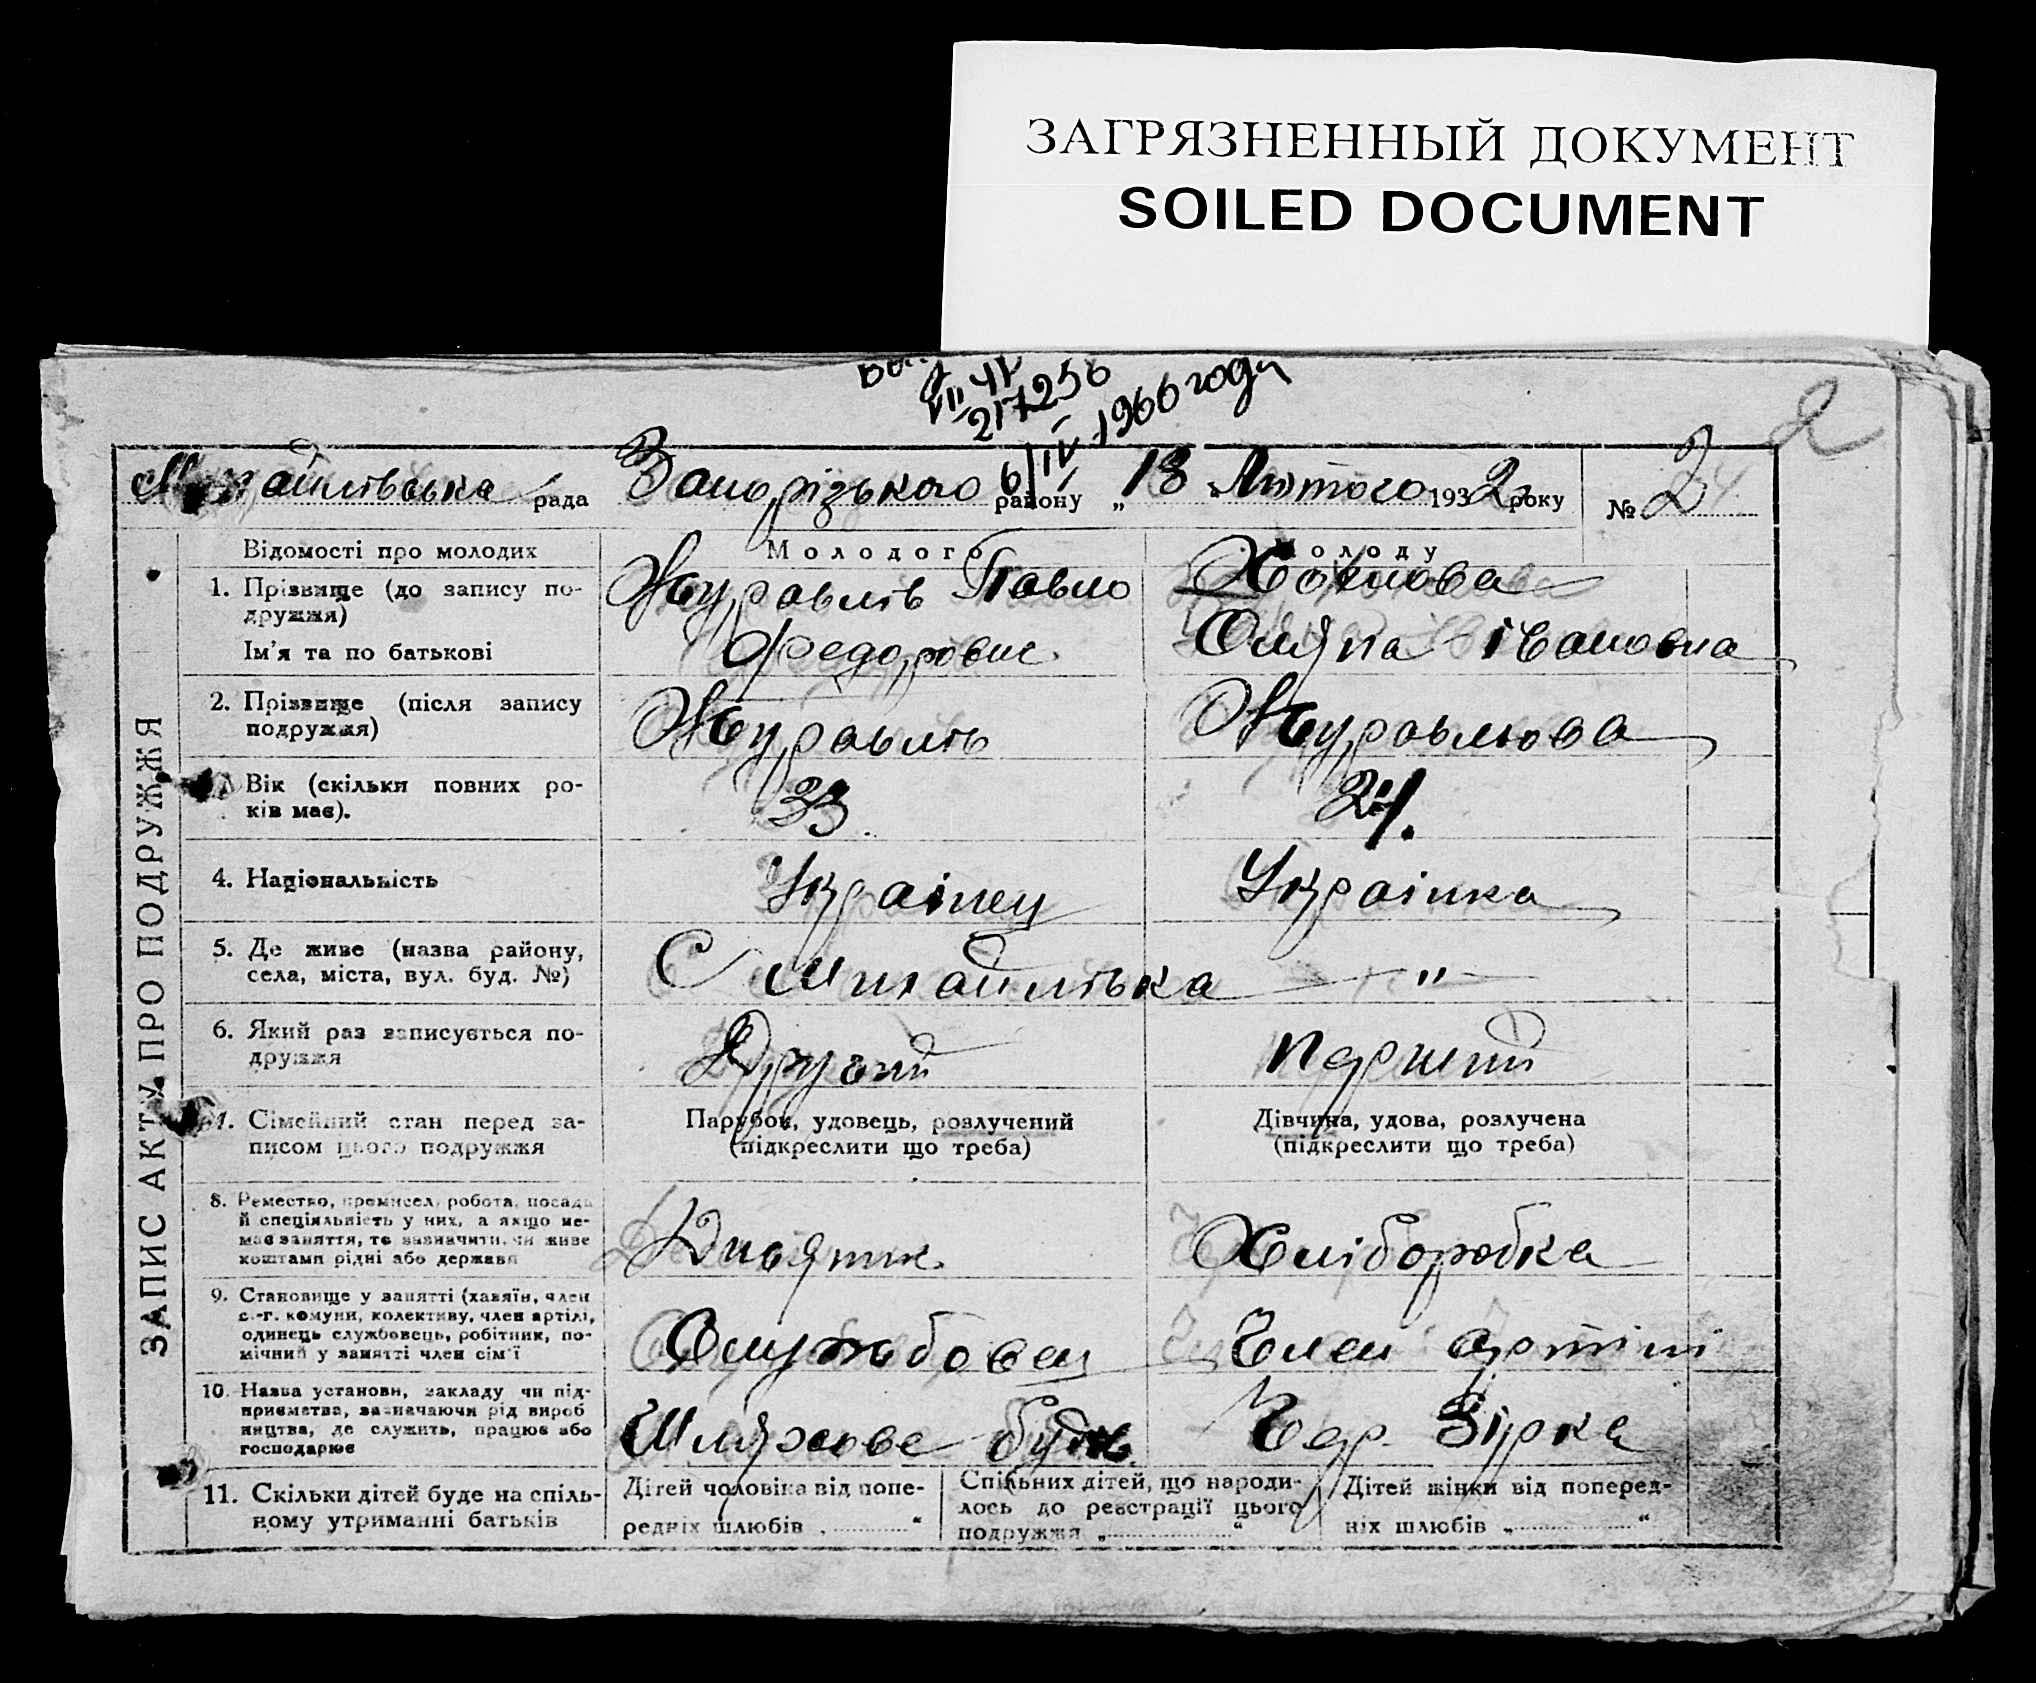 ЗАГРЯЗНЕННЫЙ ДОКУМЕНТ
SOILED DOCUMENT
217256
6/IV 1966 году
2
Михайлівська рада Запорізького району „18 Лютого 1932 року № 2
ЗАПИС АКТУ ПРО ПОДРУЖЖЯ
Відомості про молодих Молодого Молоду
1. Прізвище (до запису по-
дружжя)
Ім'я та по батькові
Журавлів Павло
Федорович
Оляна Івановна
2. Прізвище (після запису
подружжя)
Журавлів Журавльова
Вік (скільки повних ро-
ків має).
33 24.
4. Національність Українец Українка
5. Де живе (назва району,
села, міста, вул. буд. №)
С Михайлівка — " —
6. Який раз записується по-
дружжя
Другий Перший
7. Сімейний стан перед за-
писом цього подружжя
Парубок, удовець, розлучений
(підкреслити що треба)
Дівчина, удова, розлучена
(підкреслити що треба)
8. Ремество, промисел, робота, посада
й спеціяльність у них, а якщо не-
має заняття, то зазначити, чи живе
коштами рідні або держави
Хліборобка
9. Становище у занятті (хазяїн, член
с.-г. комуни, колективу, член артілі,
одинець службовець, робітник, по-
мічний у занятті член сім'ї
Службовец Член артілі
10. Назва установи, закладу чи під-
приємства, зазначаючи рід вироб
ництва, де служить, працює або
господарює
Шляхове будів. Чер. Зірка
11. Скільки дітей буде на спіль-
ному утриманні батьків
Дітей чоловіка від попе-
редніх шлюбів „ “
Спільних дітей, що народи-
лось до реєстрації цього
подружжя „ “
Дітей жінки від поперед-
ніх шлюбів „ “